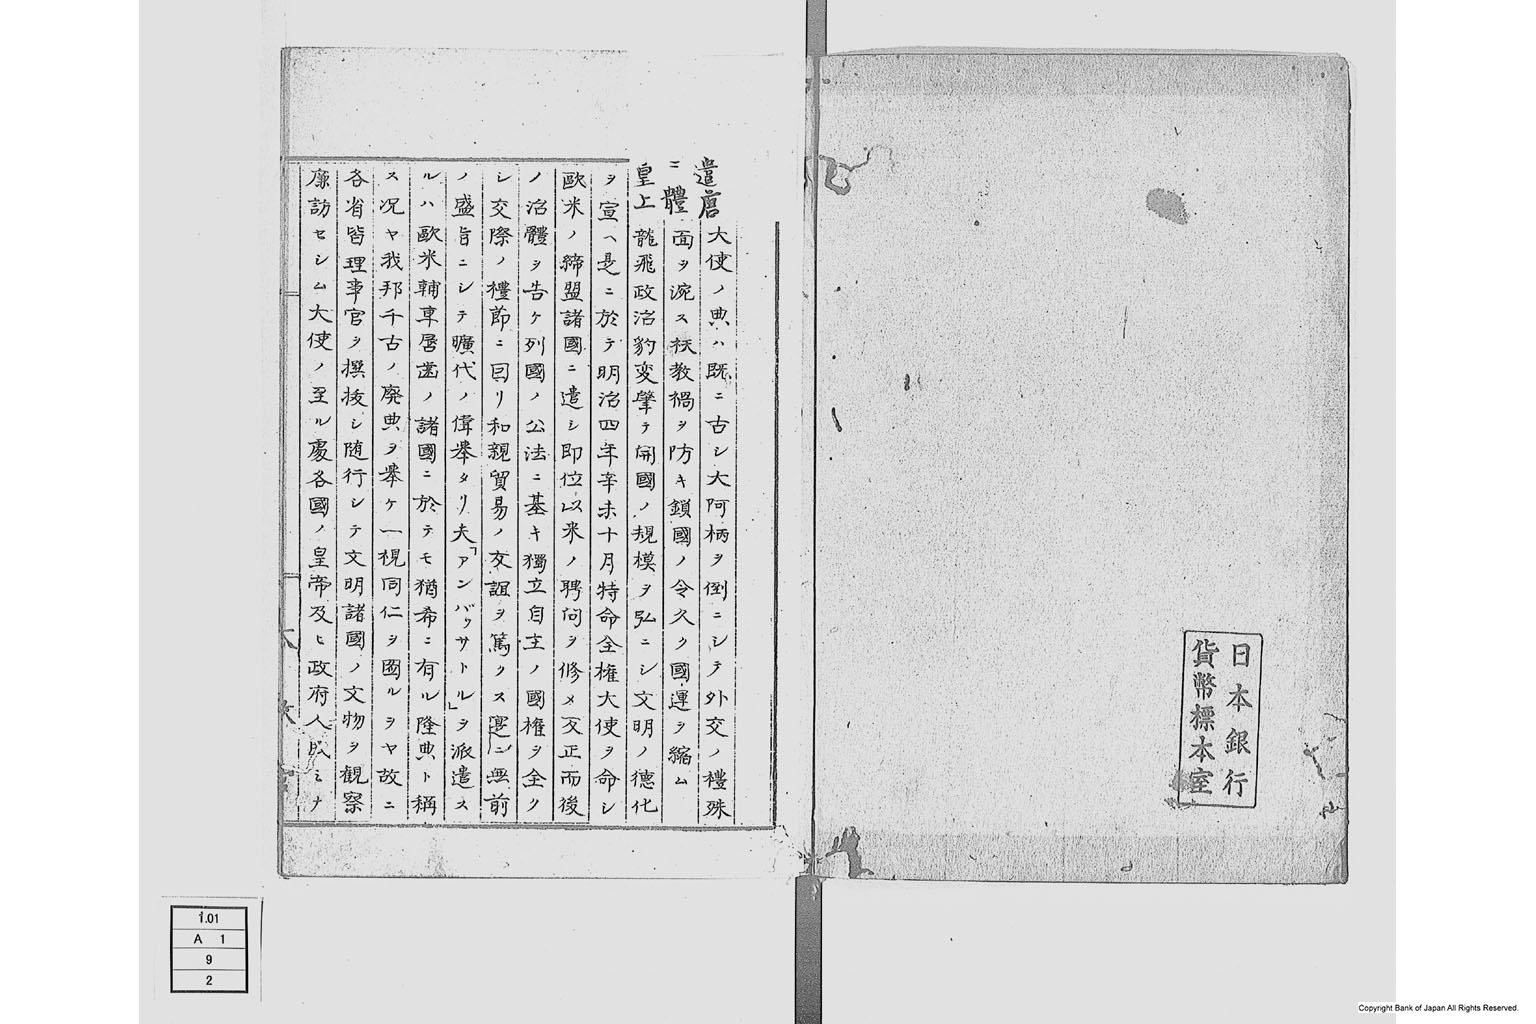 日本銀行
貨幣標本室
遣唐大使ノ典ハ既ニ古シ大阿柄ヲ倒ニシテ外交ノ禮殊
ニ體面ヲ涴ス祅教禍ヲ防キ鎖國ノ令久ク國運ヲ縮ム
皇上龍飛政治豹変肇テ開國ノ規模ヲ弘ニシ文明ノ德化
ヲ宣ヘ是ニ於テ明治四年辛未十月特命全権大使ヲ命シ
歐米ノ締盟諸國ニ遣シ即位以来ノ聘问ヲ修メ交正而後
ノ治體ヲ告ケ列國ノ公法ニ基キ獨立自主ノ國権ヲ全ク
シ交際ノ禮節ニ因リ和親貿易ノ交誼ヲ篤クス寔ニ無前
ノ盛旨ニシテ曠代ノ偉擧タリ夫「アンバッサトル」ヲ派遣ス
ルハ歐米輔車唇歯ノ諸國ニ於テモ猶希ニ有ル隆典ト稱
ス况ヤ我邦千古ノ廃典ヲ擧ケ一視同仁ヲ圖ルヲヤ故ニ
各省皆理事官ヲ撰抜シ随行シテ文明諸國ノ文物ヲ觀察
廉訪セシム大使ノ至ル處各國ノ皇帝及ヒ政府人民ミナ
1.01
A 1
9
2
Copyright Bank of Japan All Rights Reserved.